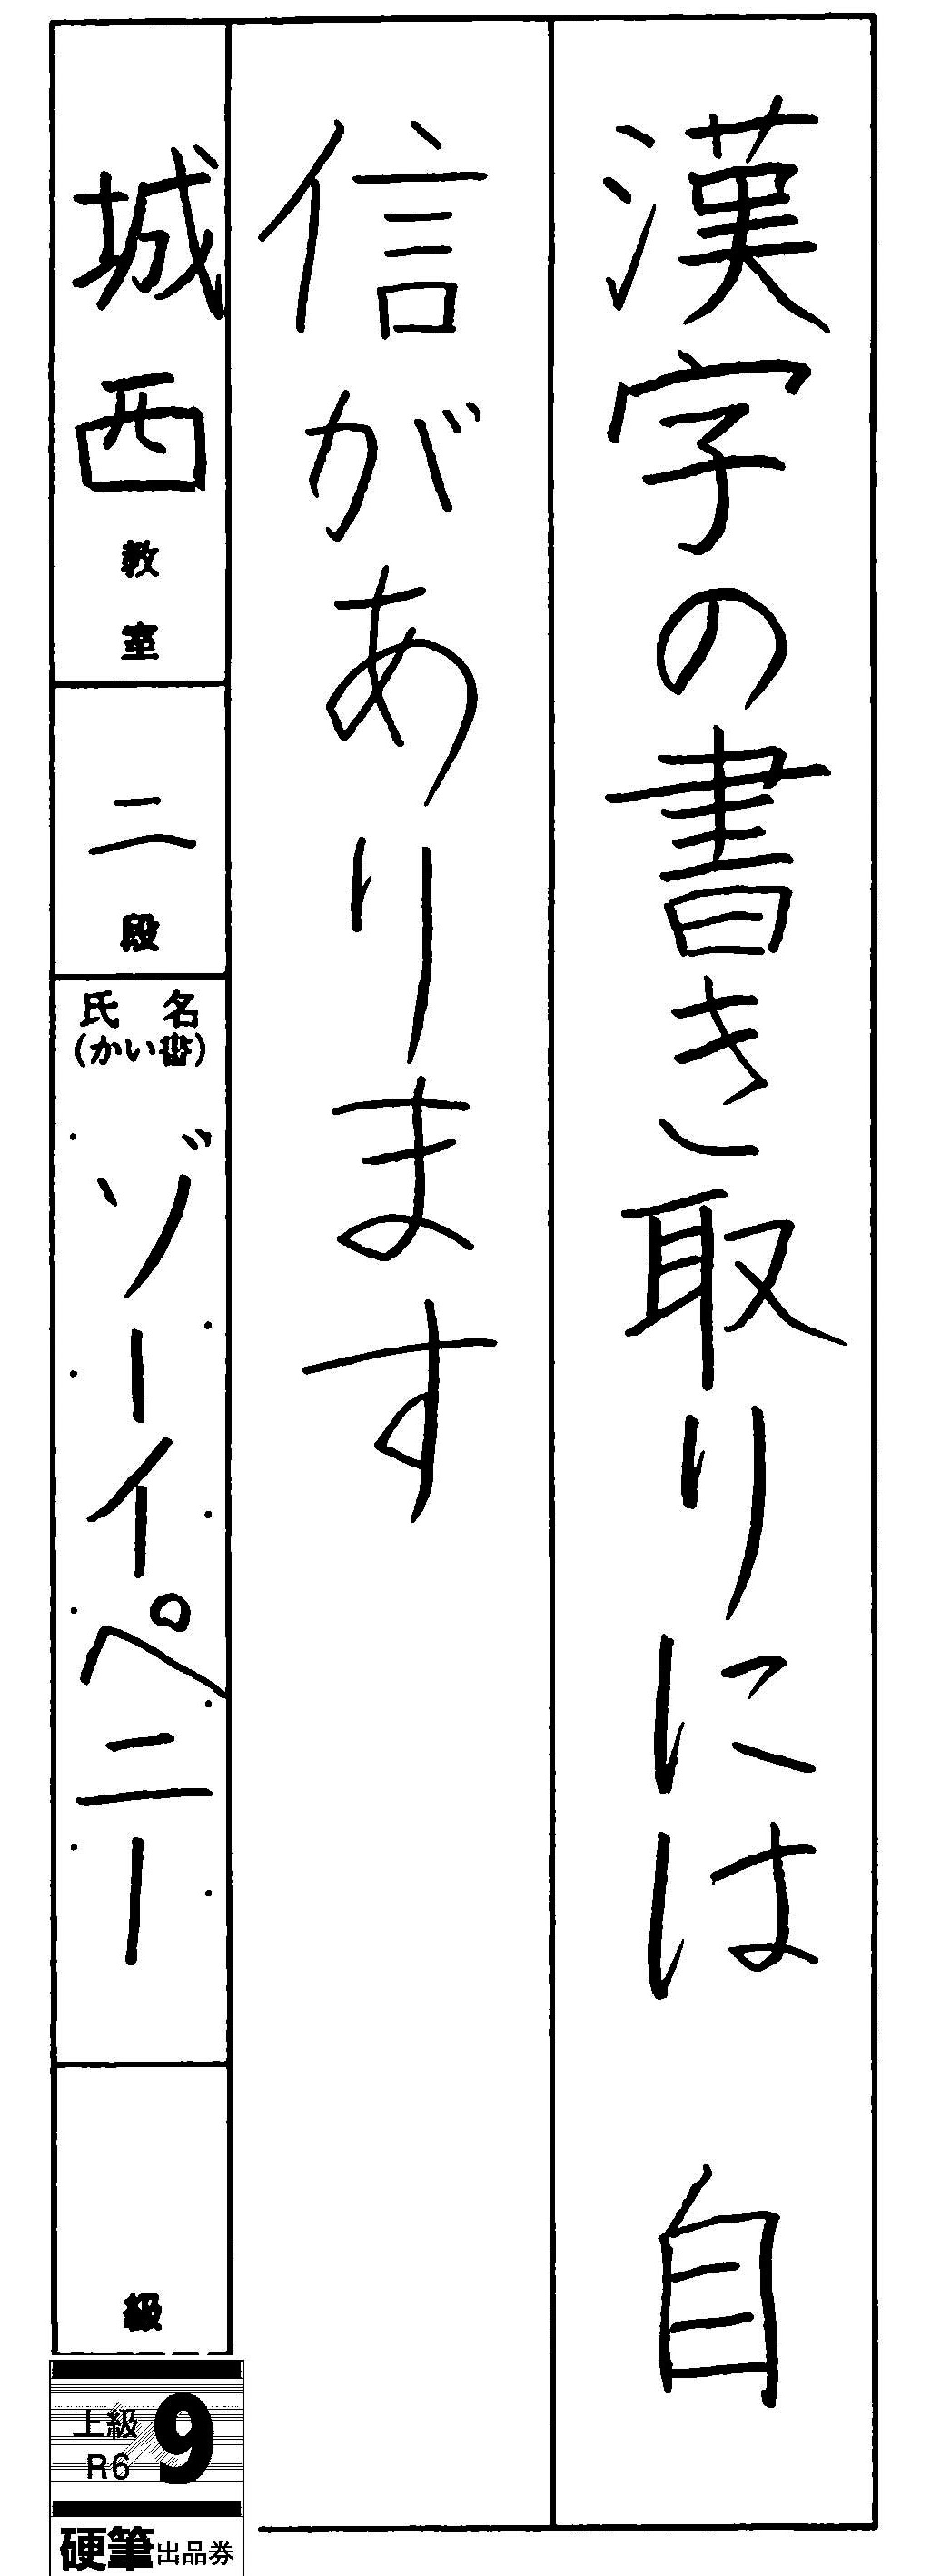 漢字の書き取りには 自
信があります
城西教室
二段
氏名
(かい書)
ゾーイペニー
級
上級 9
R6
硬筆出品券